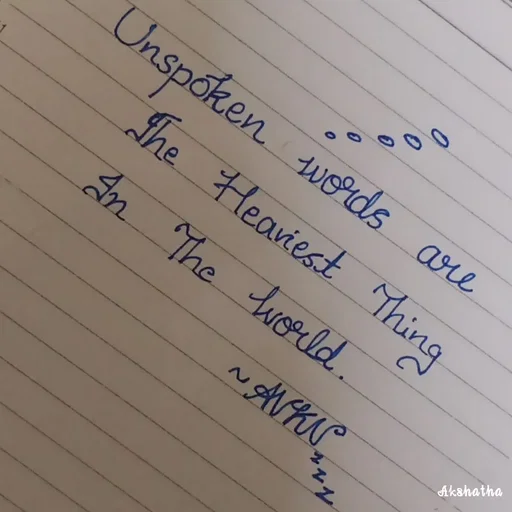 Unspoken words are
The Heaviest Thing
In The world.
~AVKN
Akshatha